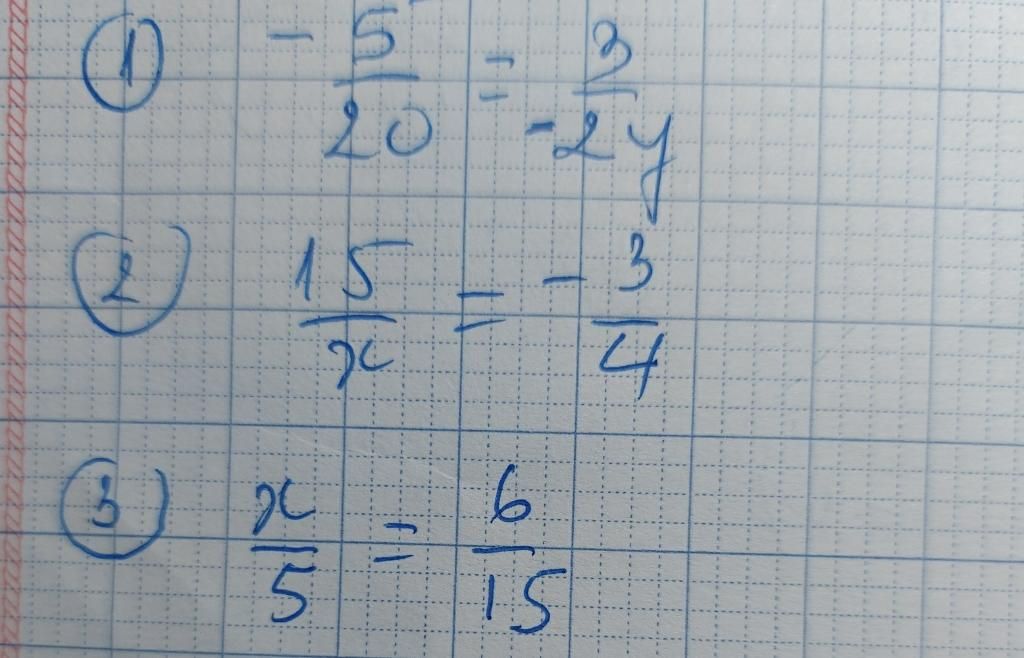 ① - 5/20 = 3/-2y
② 15/x = - 3/4
③ x/5 = 6/15